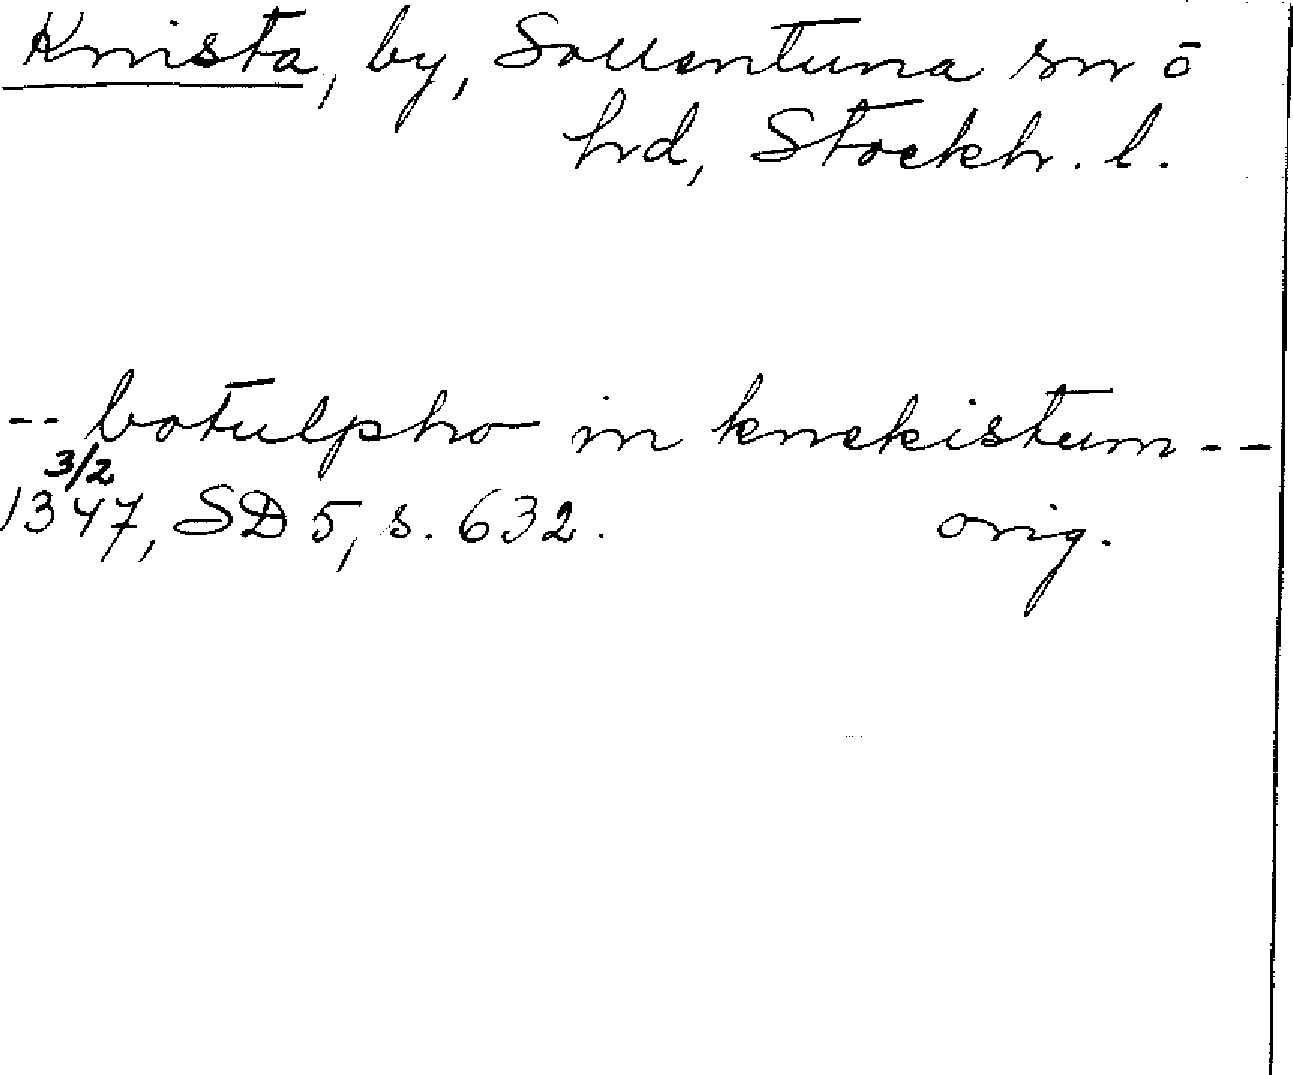 Knista, by, Sollentuna sn ō
hd, Stockh. l.
-- botulpho in knekistum --
3/2
1347, SD 5, s. 632. orig.